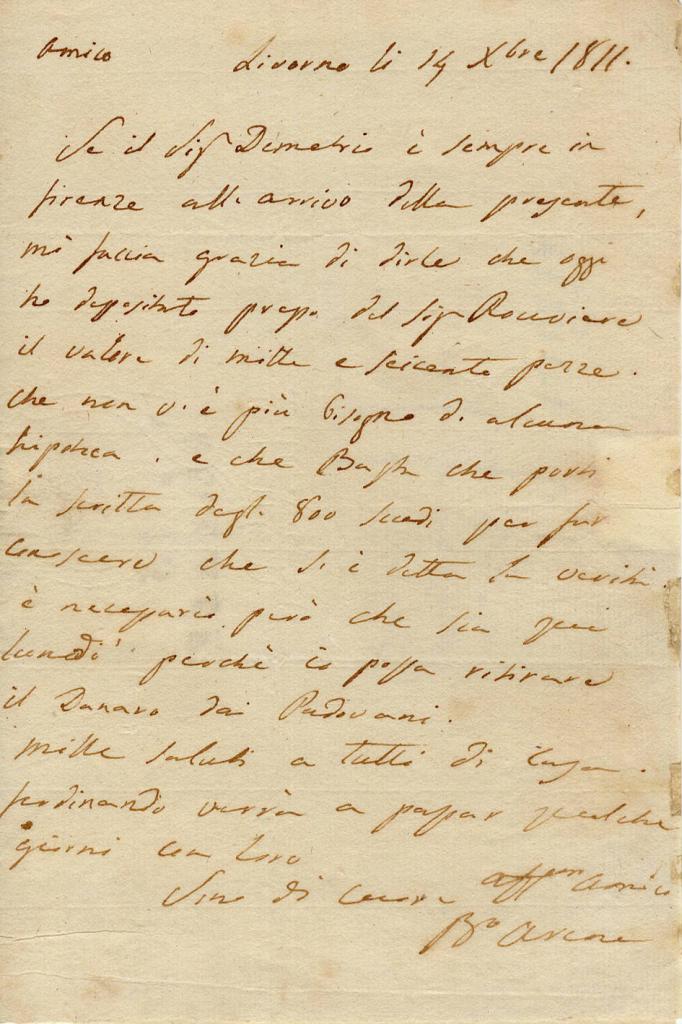 Amico Livorno li 14 Xbre 1811.
Se il Sigr Demetrio è sempre in
firenze all'arrivo della presente,
mi faccia grazia di dirle che oggi
ho depositato presso del Sigr
il valore di mille e seicento pezze.
che non v'è più bisogno di alcuna
hipoteca. e che Basta che porti
la scritta degli 800 scudi per far
conoscere che si è detta la verità.
è necessario però che sia qui
lunedì perchè io possa ritirare
il Danaro dai Padovani.
mille saluti a tutti di Casa.
ferdinando verrà a passar qualche
giorni con loro
Sono di cuore affmo Amico